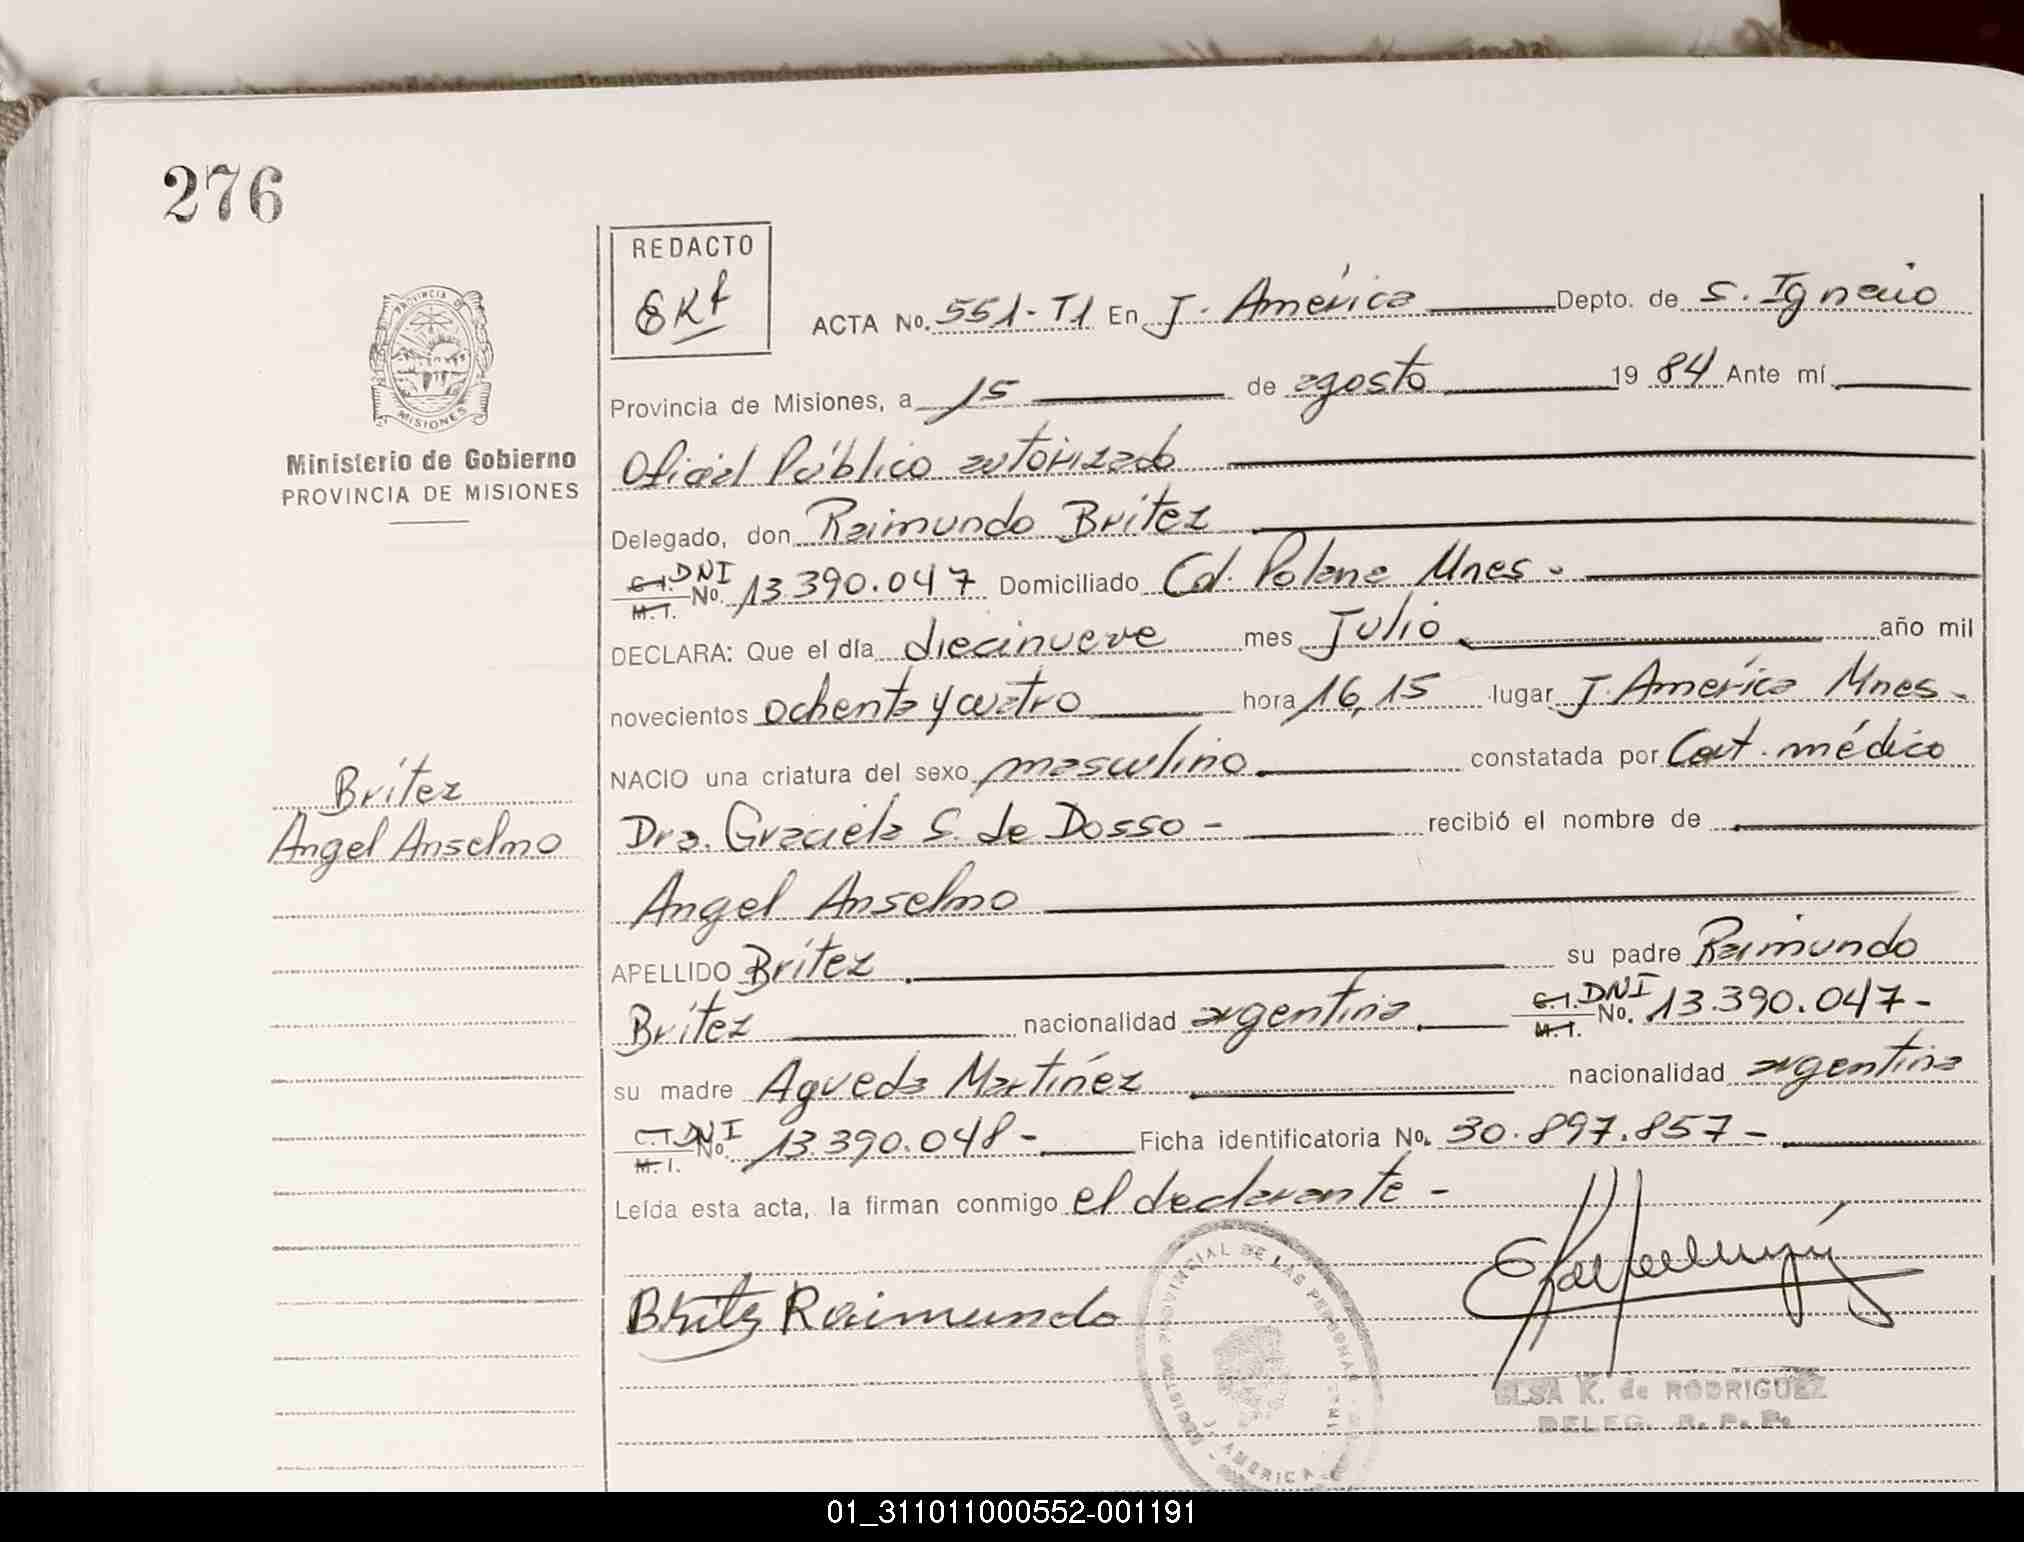 276
REDACTO
ERf
ACTA No. 551-T1 En J. América Depto. de S. Ignacio
Provincia de Misiones, a 15 de agosto 1984 Ante mí
PROVINCIA DE
MISIONES
Ministerio de Gobierno
PROVINCIA DE MISIONES
Oficial Público autorizado
Delegado, don Raimundo Brítez
C.I. DNI
M.I. No. 13.390.047 Domiciliado Col. Polana Mnes.
DECLARA: Que el día diecinueve mes Julio año mil
novecientos ochenta y cuatro hora 16,15 lugar J. América Mnes.
NACIO una criatura del sexo masculino constatada por Cert. médico
Brítez
Angel Anselmo
Dra. Graciela S. de Dosso - recibió el nombre de
Angel Anselmo
APELLIDO Brítez su padre Raimundo
Brítez nacionalidad argentina C.I. DNI M.I. No. 13.390.047-
su madre Agueda Martínez nacionalidad argentina
C.I. DNI M.I. No. 13.390.048- Ficha identificatoria No. 30.897.857-
Leída esta acta, la firman conmigo el declarante -
Britez Raimundo
PROVINCIAL DE LAS PERSONAS
J. AMERICA
ELSA K. de RODRIGUEZ
DELEG. R. P. P.
01_311011000552-001191